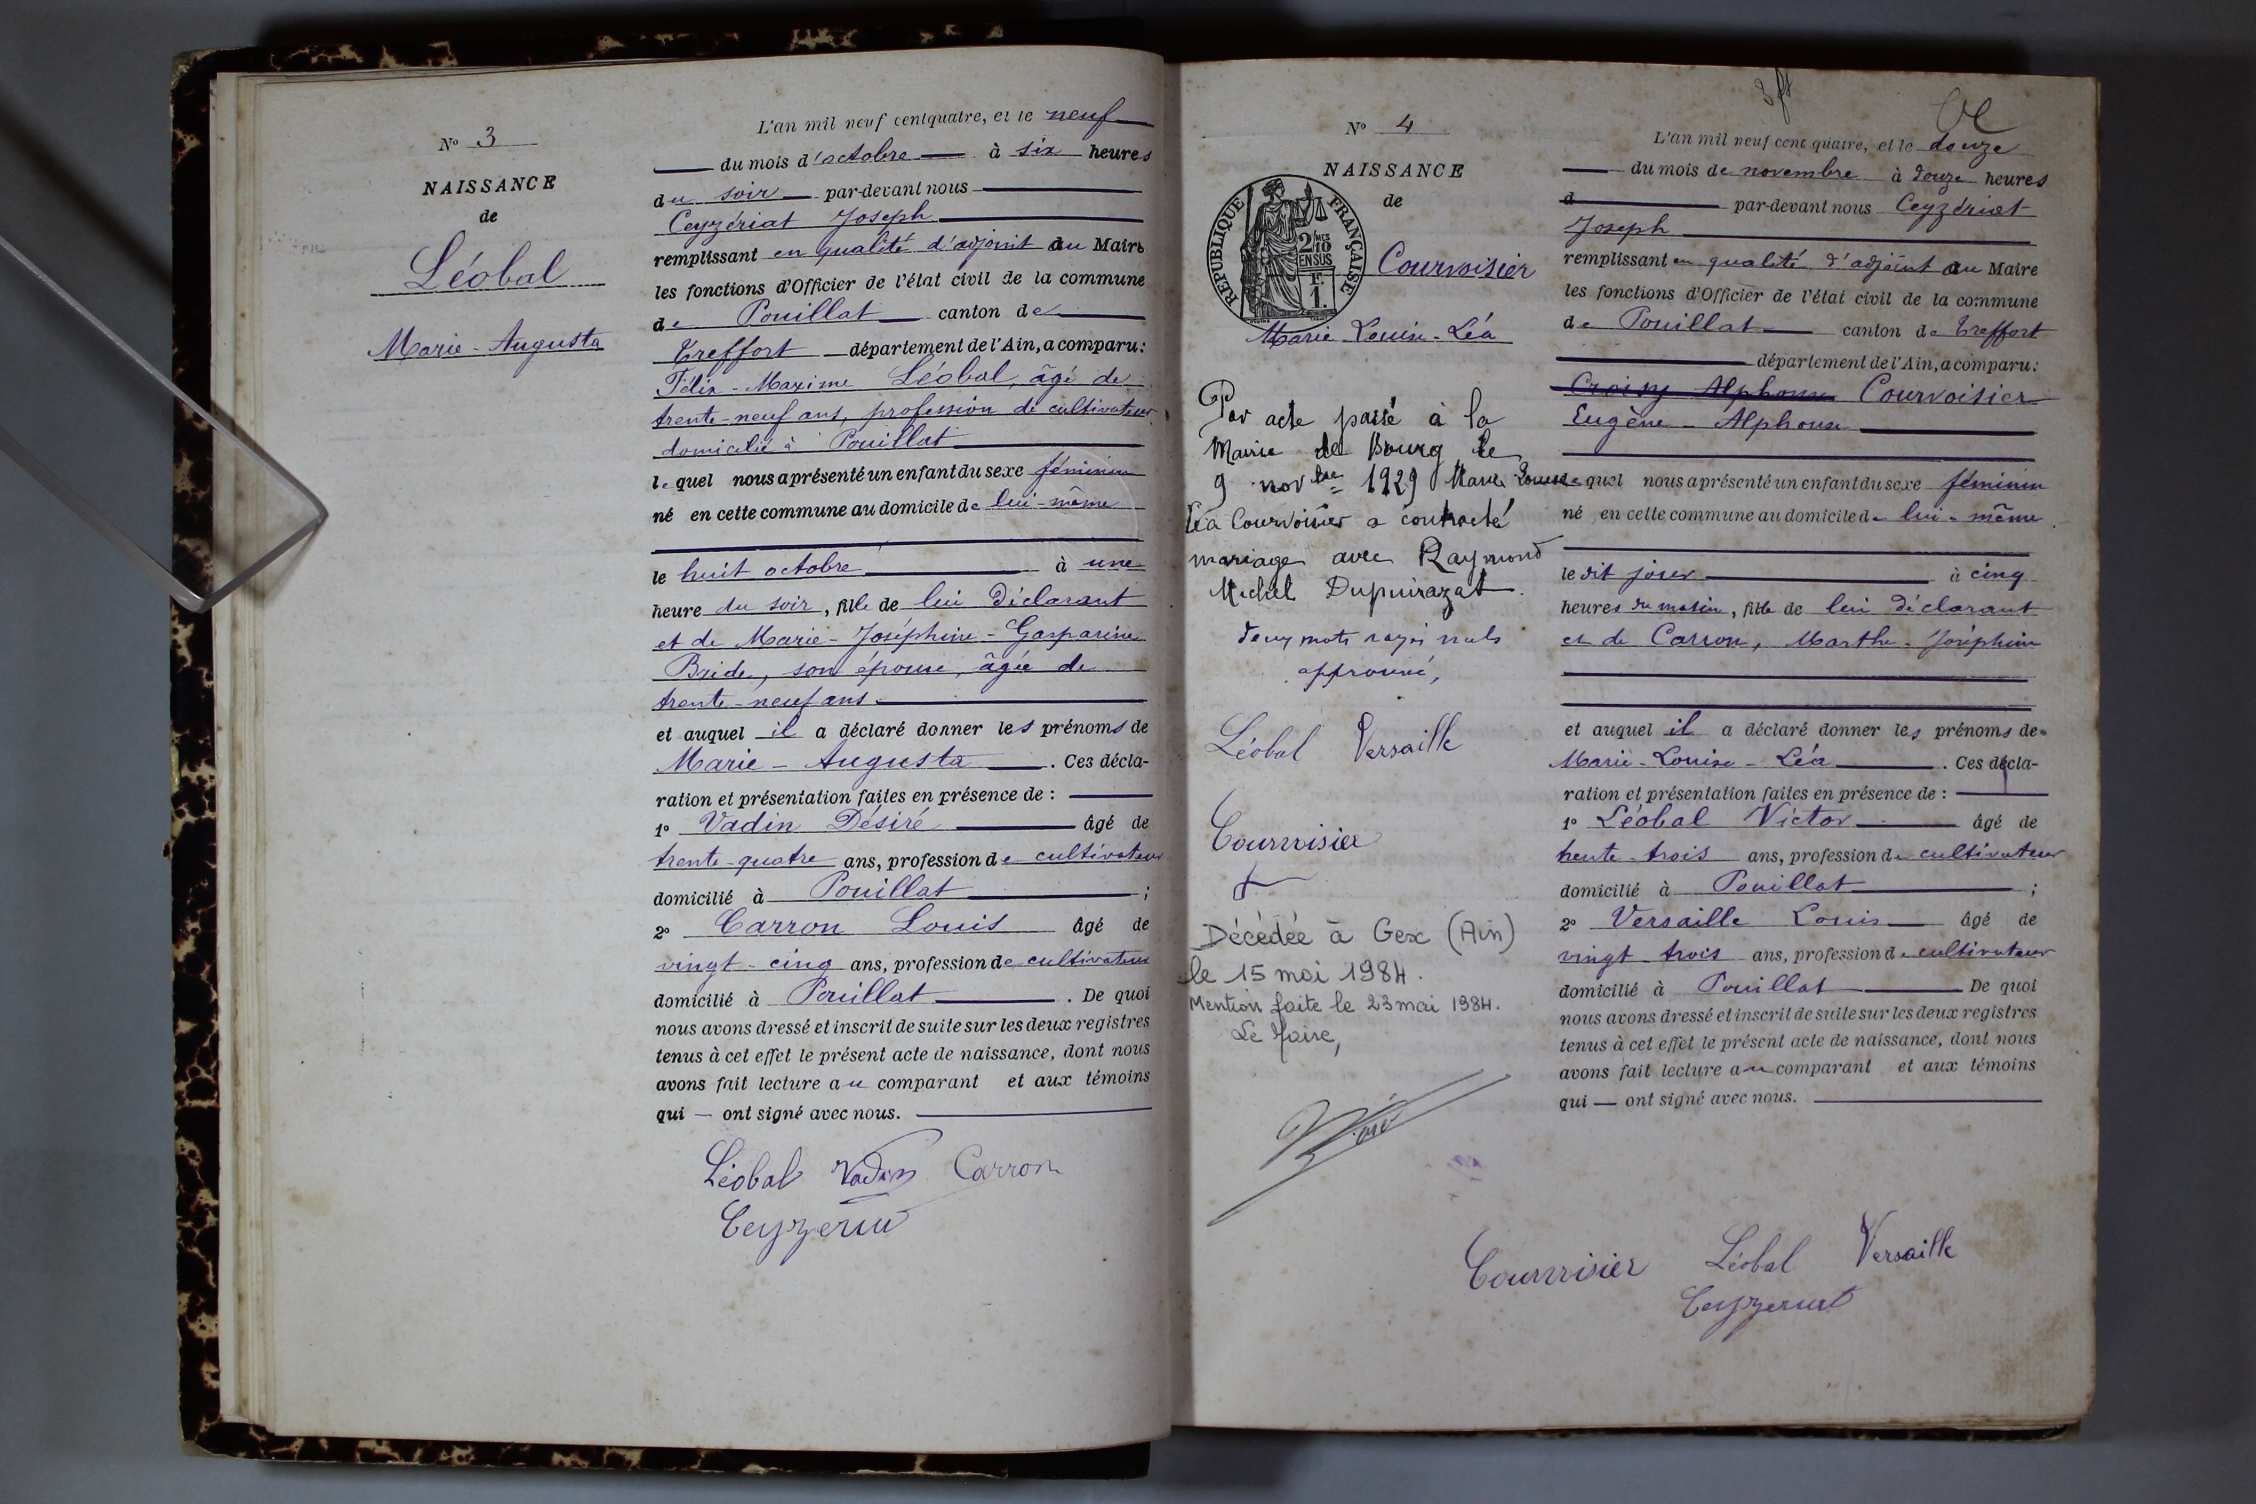 N° 3
NAISSANCE
de
Léobal
Marie-Augusta
L'an mil neuf cent quatre, et le neuf
du mois d'octobre à six heures
du soir par-devant nous
Ceyzériat Joseph
remplissant en qualité d'adjoint au Maire
les fonctions d'Officier de l'état civil de la commune
de Pouillat canton de
Treffort département de l'Ain, a comparu :
Félix-Maxime Léobal, âgé de
trente-neuf ans, profession de cultivateur
domicilié à Pouillat
lequel nous a présenté un enfant du sexe féminin
né en cette commune au domicile de lui-même
le huit octobre à une
heure du soir, fille de lui déclarant
et de Marie-Joséphine-Gasparine
Bride, son épouse, âgée de
trente-neuf ans.
et auquel il a déclaré donner les prénoms de
Marie-Augusta. Ces décla-
ration et présentation faites en présence de :
1° Vadin Désiré âgé de
trente-quatre ans, profession de cultivateur
domicilié à Pouillat ;
2° Carron Louis âgé de
vingt-cinq ans, profession de cultivateur
domicilié à Pouillat. De quoi
nous avons dressé et inscrit de suite sur les deux registres
tenus à cet effet le présent acte de naissance, dont nous
avons fait lecture au comparant et aux témoins
qui — ont signé avec nous.
Léobal Vadin Carron
Ceyzeriat
N° 4
NAISSANCE
de
REPUBLIQUE FRANÇAISE
2/10 MES
EN SUS
F.
1.
Courvoisier
Marie-Louise-Léa
Par acte passé à la
Mairie de Bourg le
9 novbre 1929 Marie Louise
Léa Courvoisier a contracté
mariage avec Raymond
Michel Dupuirazat.
deux mots rayés nuls
approuvé,
Léobal Versaille
Courvoisier
Décédée à Gex (Ain)
le 15 mai 1984.
Mention faite le 23 mai 1984.
Le Maire,
L'an mil neuf cent quatre, et le douze
du mois de novembre à douze heures
d par-devant nous Ceyzériat
Joseph
remplissant en qualité d'adjoint au Maire
les fonctions d'Officier de l'état civil de la commune
de Pouillat canton de Treffort
département de l'Ain, a comparu :
Alphonse Courvoisier
Eugène-Alphonse
lequel nous a présenté un enfant du sexe féminin
né en cette commune au domicile de lui-même
le dit jour à cinq
heures du matin, fille de lui déclarant
et de Carron, Marthe-Joséphine
et auquel il a déclaré donner les prénoms de
Marie-Louise-Léa. Ces décla-
ration et présentation faites en présence de :
1° Léobal Victor âgé de
trente-trois ans, profession de cultivateur
domicilié à Pouillat ;
2° Versaille Louis âgé de
vingt trois ans, profession de cultivateur
domicilié à Pouillat De quoi
nous avons dressé et inscrit de suite sur les deux registres
tenus à cet effet le présent acte de naissance, dont nous
avons fait lecture au comparant et aux témoins
qui — ont signé avec nous.
Courvoisier Léobal Versaille
Ceyzeriat